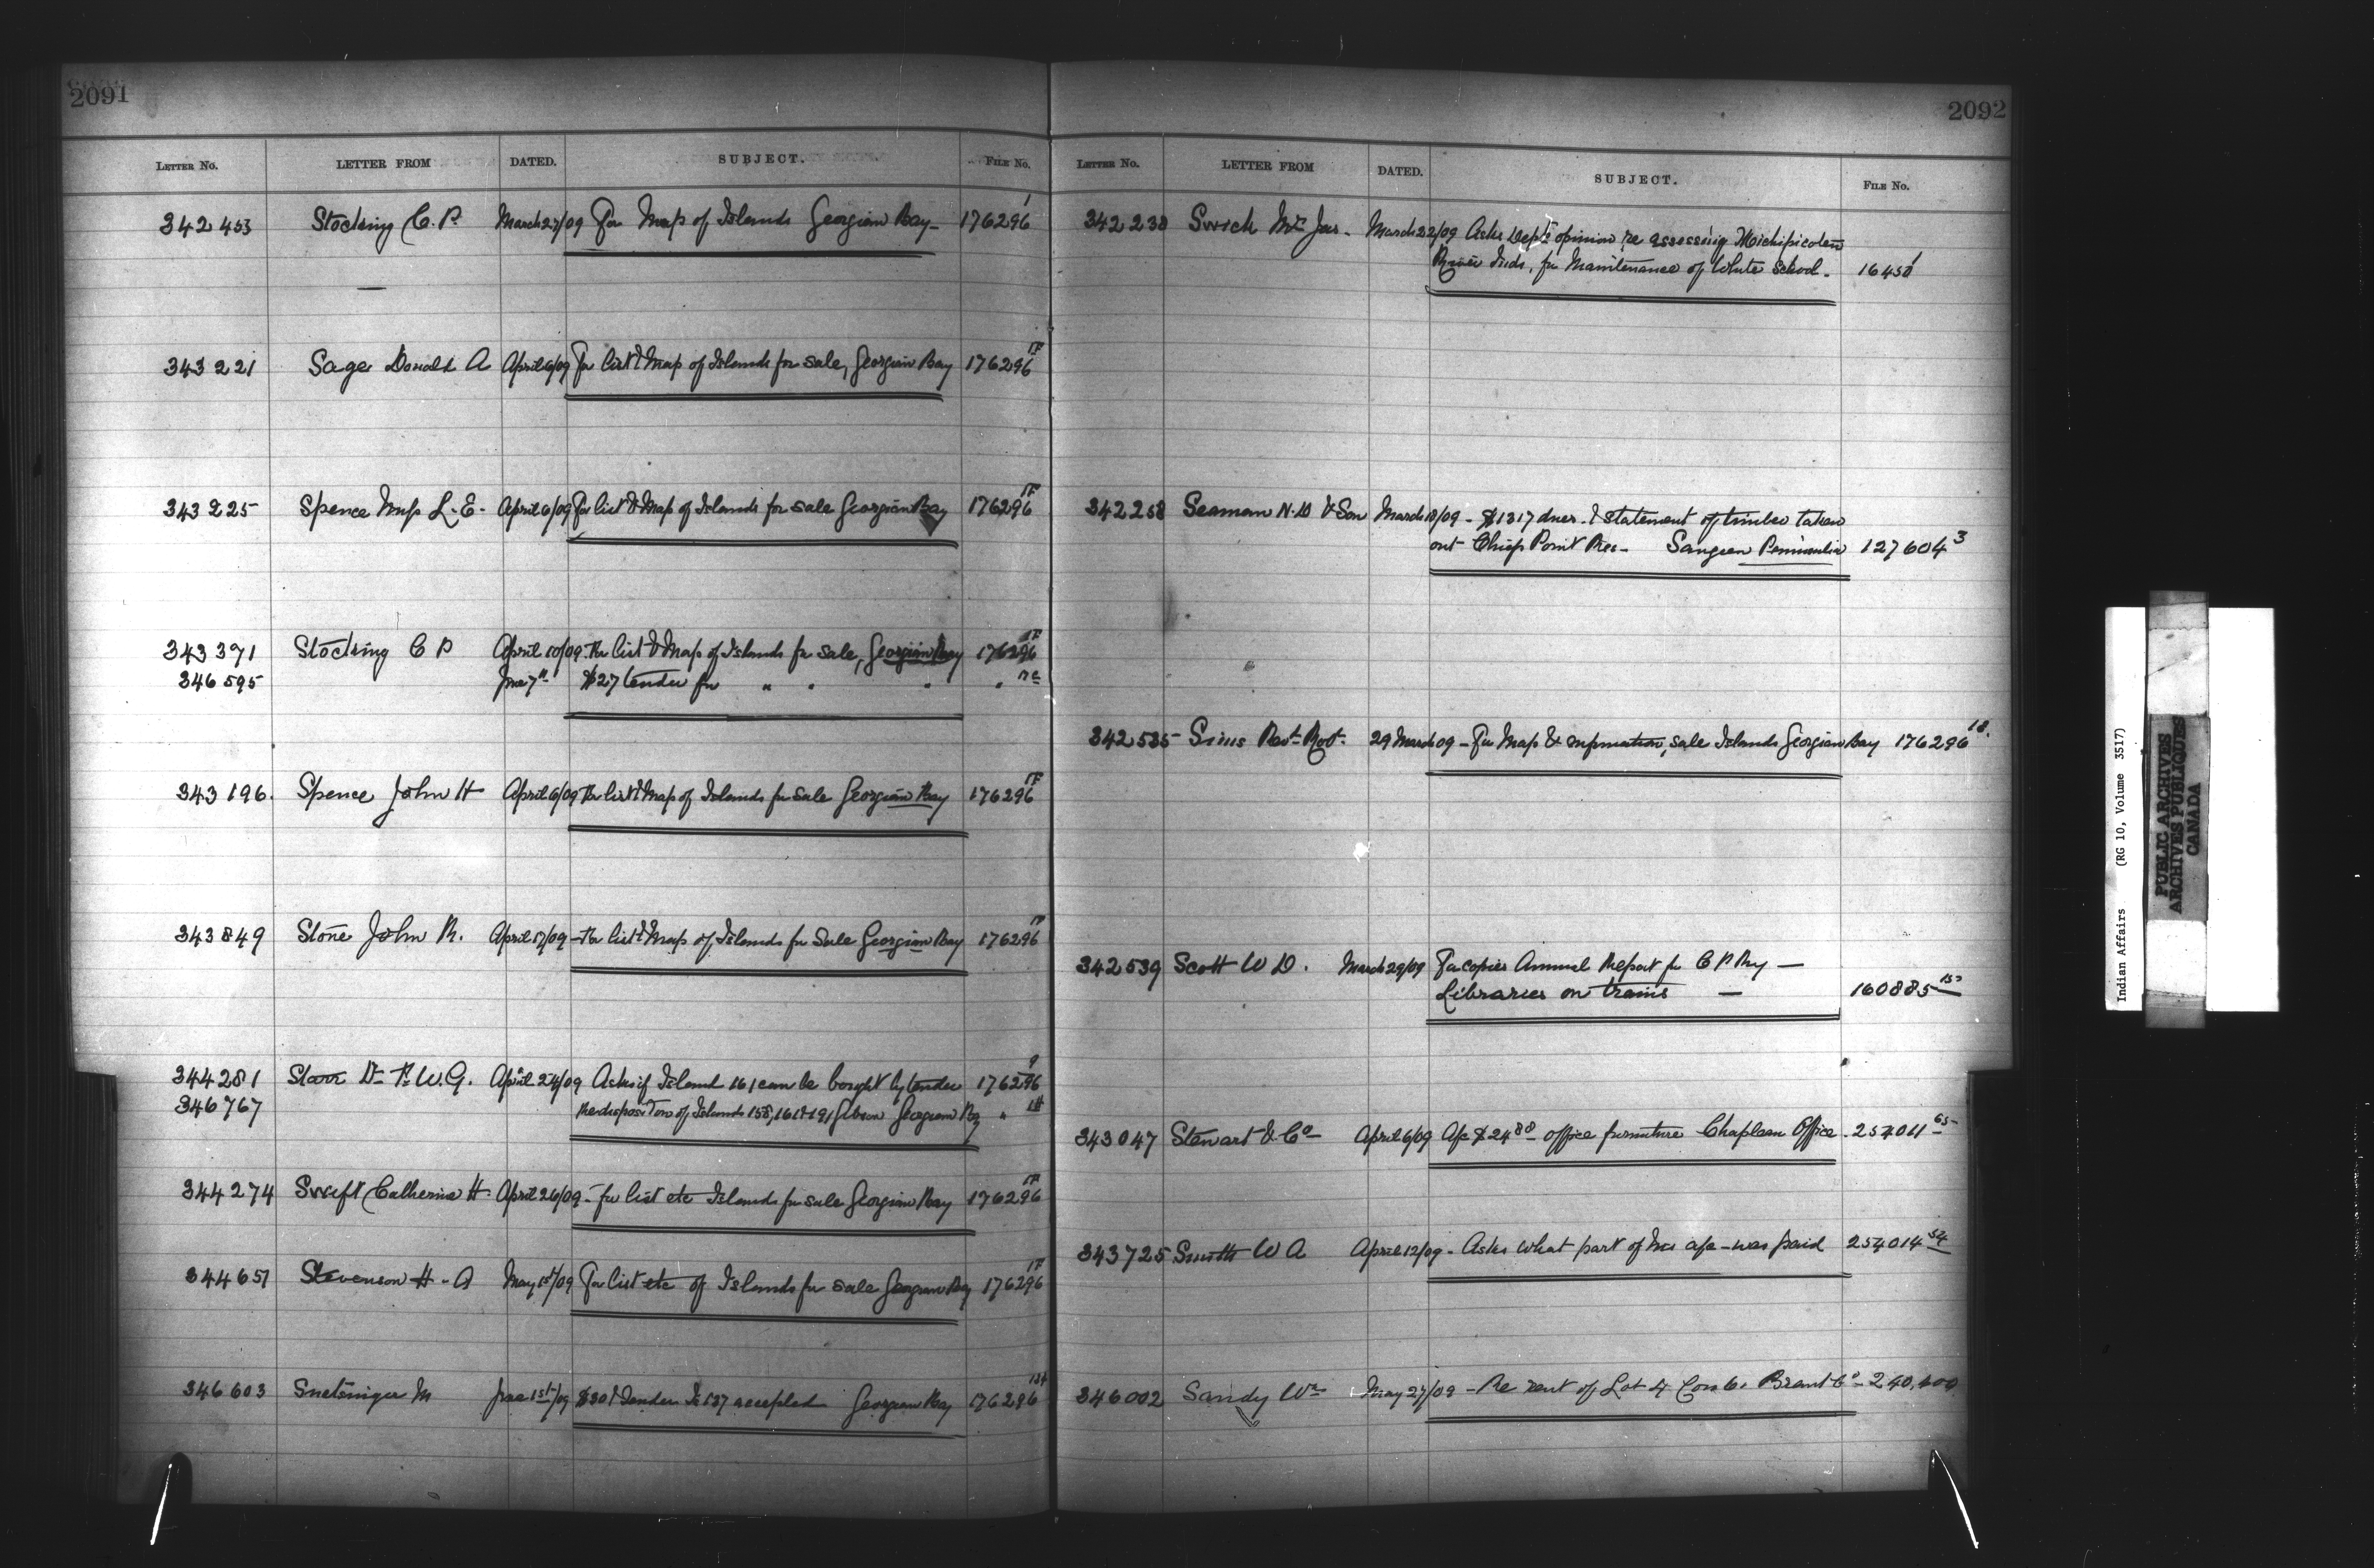 2091
LETTER NO. LETTER FROM DATED. SUBJECT. FILE NO.
342453 Stocking C. P. March 27/09 For Map of Islands Georgian Bay 176296 1
343221 Sage Donald A April 6/09 For list & Map of Islands for sale, Georgian Bay 176296 1F
343225 Spence L. E. April 6/09 For list & Map of Islands for sale Georgian Bay 176296 1F
343391 Stocking C P April 10/09 For list & Map of Islands for sale, Georgian Bay 176296 1F
346595 June 7th $27 tender for " " " "
343196 Spence John H April 6/09 For list & Map of Islands for sale Georgian Bay 176296 1F
343849 Stone John R. April 17/09 For list & Map of Islands for Sale Georgian Bay 176296 1F
344281 Starr Dr F. W. G. April 24/09 Asks if Island 161 can be bought by tender 176296 9
346767 Re disposition of Islands 158, 161 & 191 Gibson Georgian Bay "
344274 Swift Catherine H. April 26/09 - for list etc Islands for sale Georgian Bay 176296 1F
344651 Stevenson H. A May 1st/09 For list etc of Islands for sale Georgian Bay 176296 1F
346603 Snetsinger M June 1st/09 Tender accepted Georgian Bay 176296
2092
LETTER NO. LETTER FROM DATED. SUBJECT. FILE NO.
342238 Swick Mrs Jas. March 22/09 Asks Dept's opinion re assessing Michipicoten
River Inds, for Maintenance of White School. 16458 1
342258 Seaman N. D & Son March 18/09 - $1317 dues. & statement of timber taken
out Chiefs Point Res- Saugeen Peninsula 127604 3
342535 Sims Revd Robt. 29 March 09 - For Map & information, sale Islands Georgian Bay 176296 18.
342539 Scott W D. March 29/09 For copies Annual Report for C P Ry —
Libraries on trains — 160885
343047 Stewart & Co April 6/09 A/c $24.88 office furniture Chapleau Office. 254011 65
343725 Smith W A April 12/09 - Asks what part of his a/c - was paid 254014 54
346002 Sandy Wm May 27/09 - Re rent of Lot 4 Con 6. Brant Co - 240,400
Indian Affairs (RG 10, Volume 3517)
PUBLIC ARCHIVES
ARCHIVES PUBLIQUES
CANADA